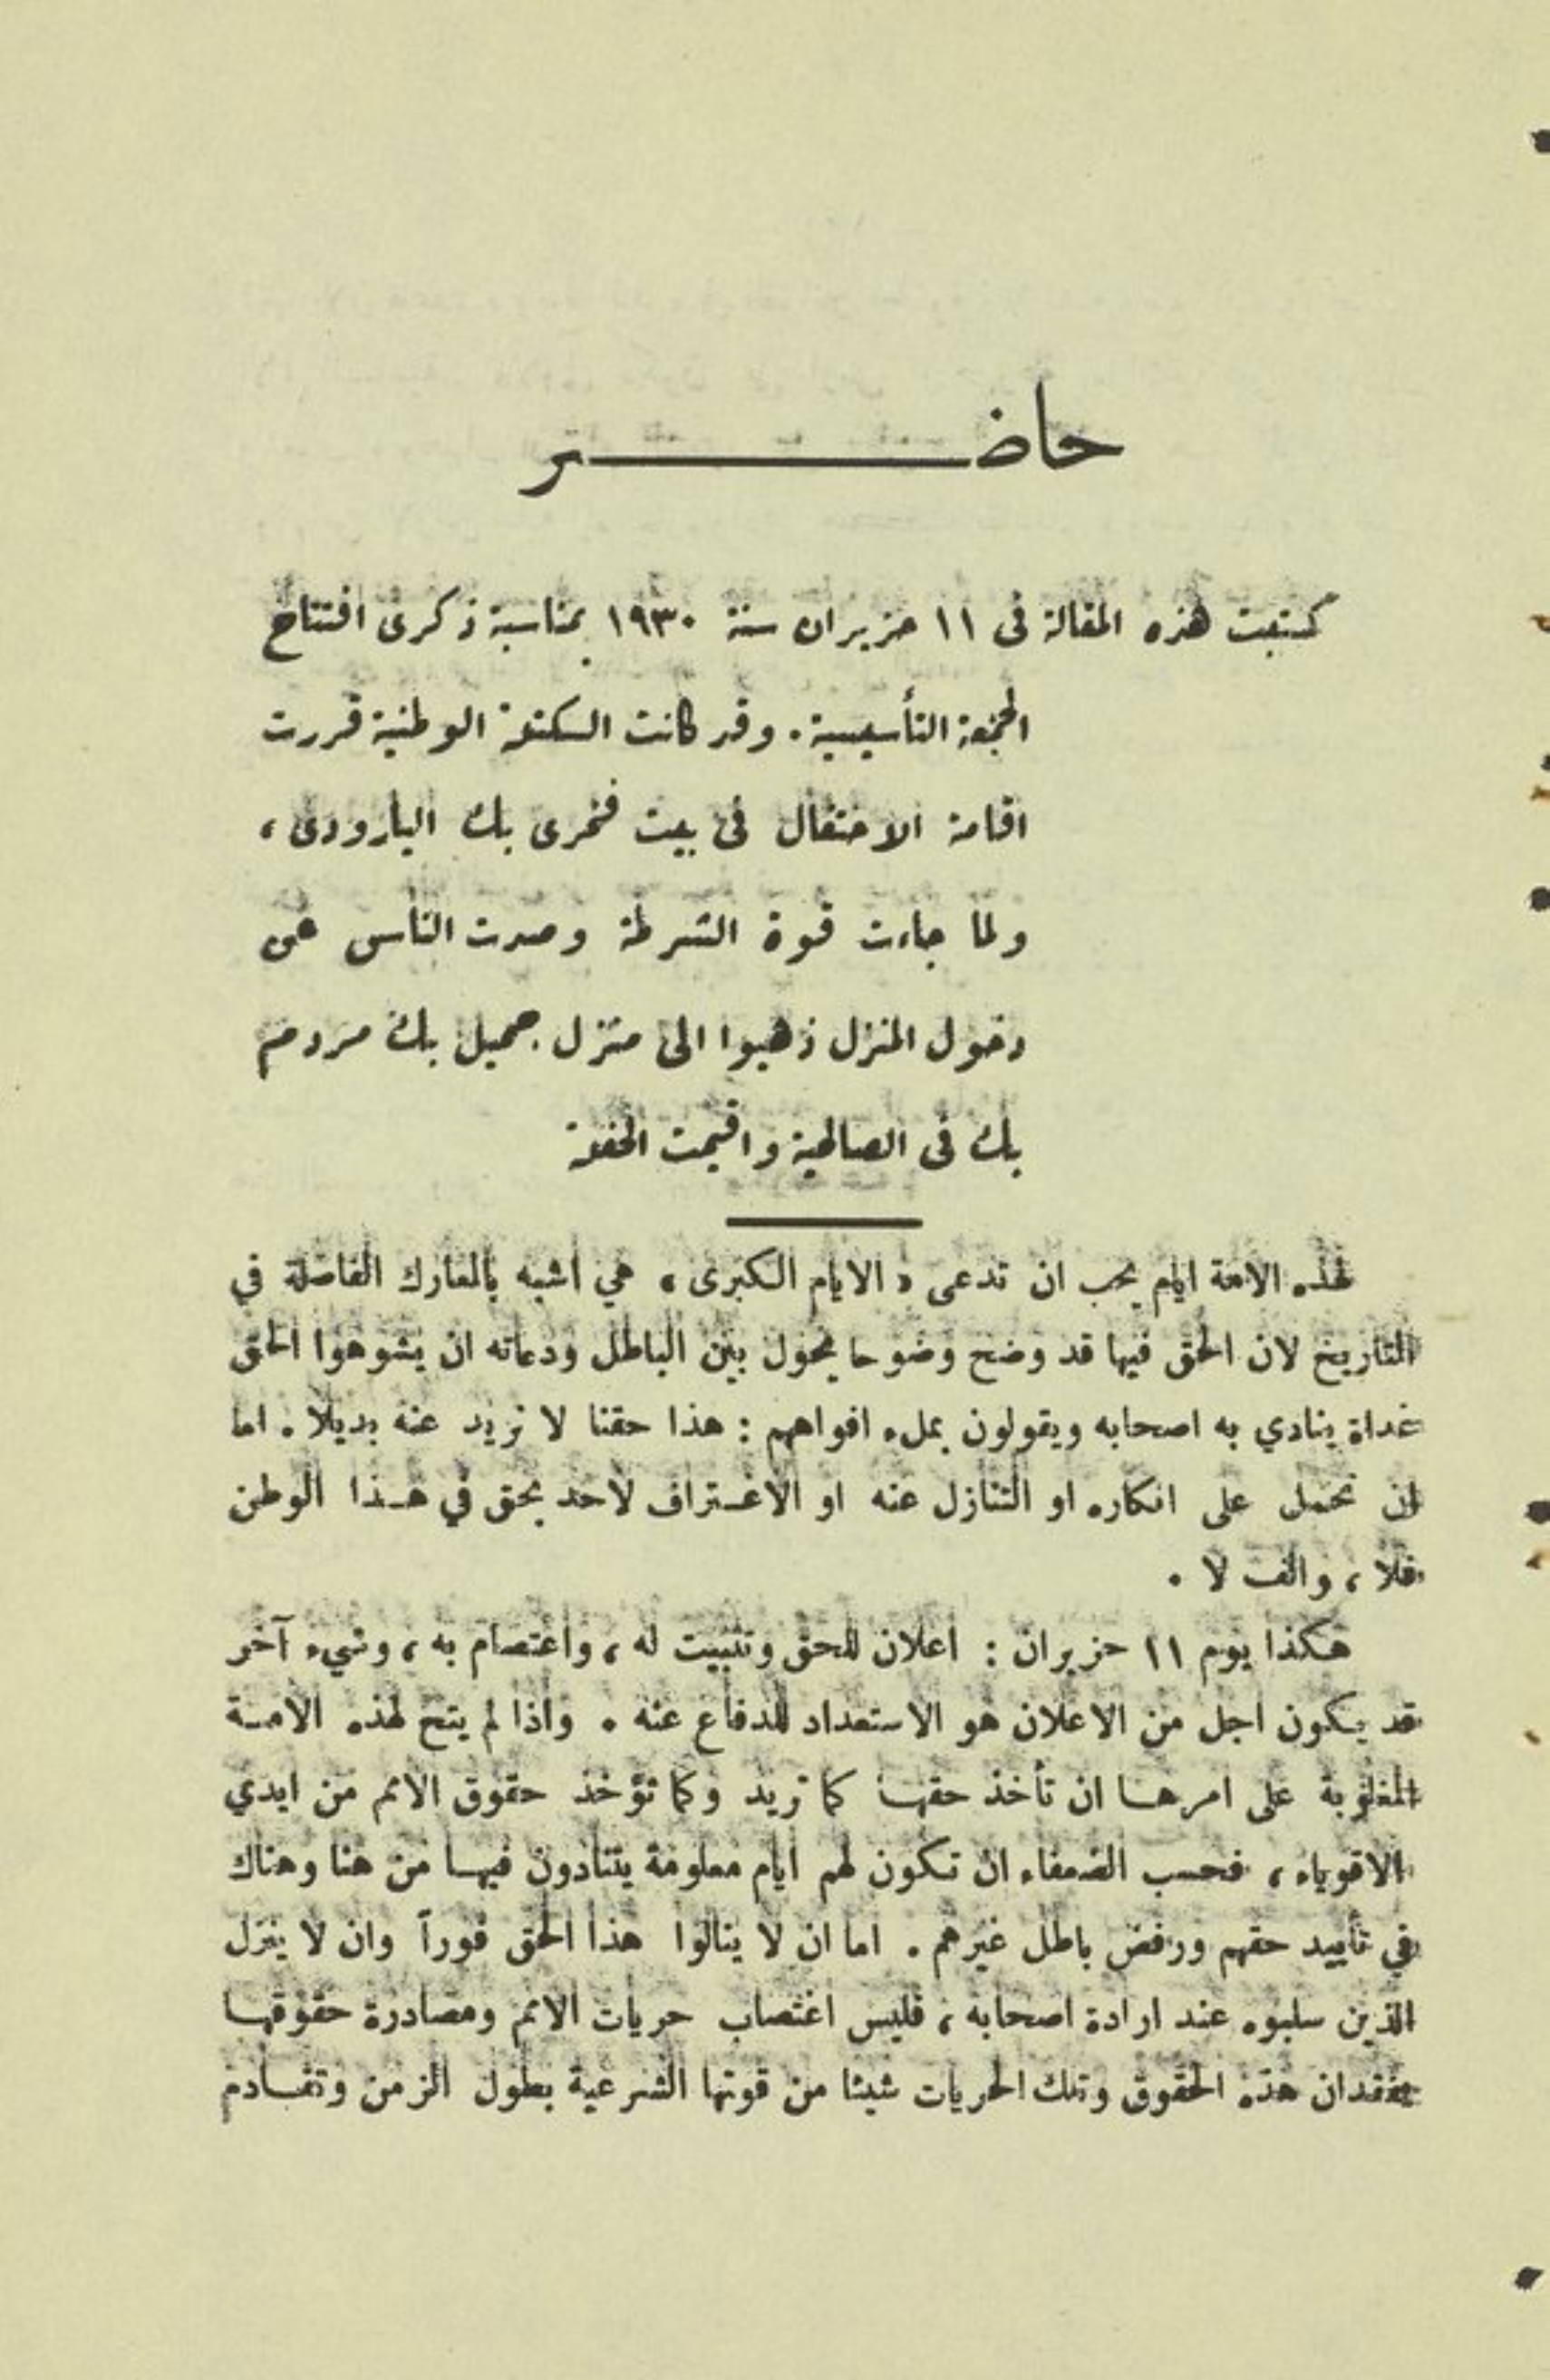 حاضر
كتبت هذه المقالة فى ١١ حزيران سنة ١٩٣٠ بمناسبة ذكرى افتتاح
الجمعية التأسيسية. وقد كانت الكتلة الوطنية قررت
اقامة الاحتفال فى بيت فخرى بك البارودى،
ولما جاءت قوة الشرطة وصدت الناس عن
دخول المنزل ذهبوا الى منزل جميل بك مردم
بك فى الصالحية واقيمت الحفلة
لهذه الامة ايام يجب ان تدعى «الايام الكبرى» هي اشبه بالمعارك الفاصلة في
التاريخ لان الحق فيها قد وضح وضوحا يحول بين الباطل ودعاته ان يشوهوا الحق
غداة ينادي به اصحابه ويقولون بملء افواههم : هذا حقنا لا نريد عنه بديلا. اما
ان نحمل على انكاره او التنازل عنه او الاعتراف لاحد بحق في هذا الوطن
فلا، والف لا.
هكذا يوم ١١ حزيران : اعلان للحق وتثبيت له، واعتصام به، وشيء آخر
قد يكون اجل من الاعلان هو الاستعداد للدفاع عنه. واذا لم يتح لهذه الامة
المغلوبة على امرها ان تأخذ حقها كما تريد وكما تؤخذ حقوق الامم من ايدي
الاقوياء، فحسب الضعفاء ان تكون لهم ايام معلومة يتنادون فيها من هنا وهناك
في تأييد حقهم ورفض باطل غيرهم. اما ان لا ينالوا هذا الحق فوراً وان لا ينزل
الذين سلبوه عند ارادة اصحابه، فليس اغتصاب حريات الامم ومصادرة حقوقها
بفقدان هذه الحقوق وتلك الحريات شيئا من قوتها الشرعية بطول الزمن وتقادم